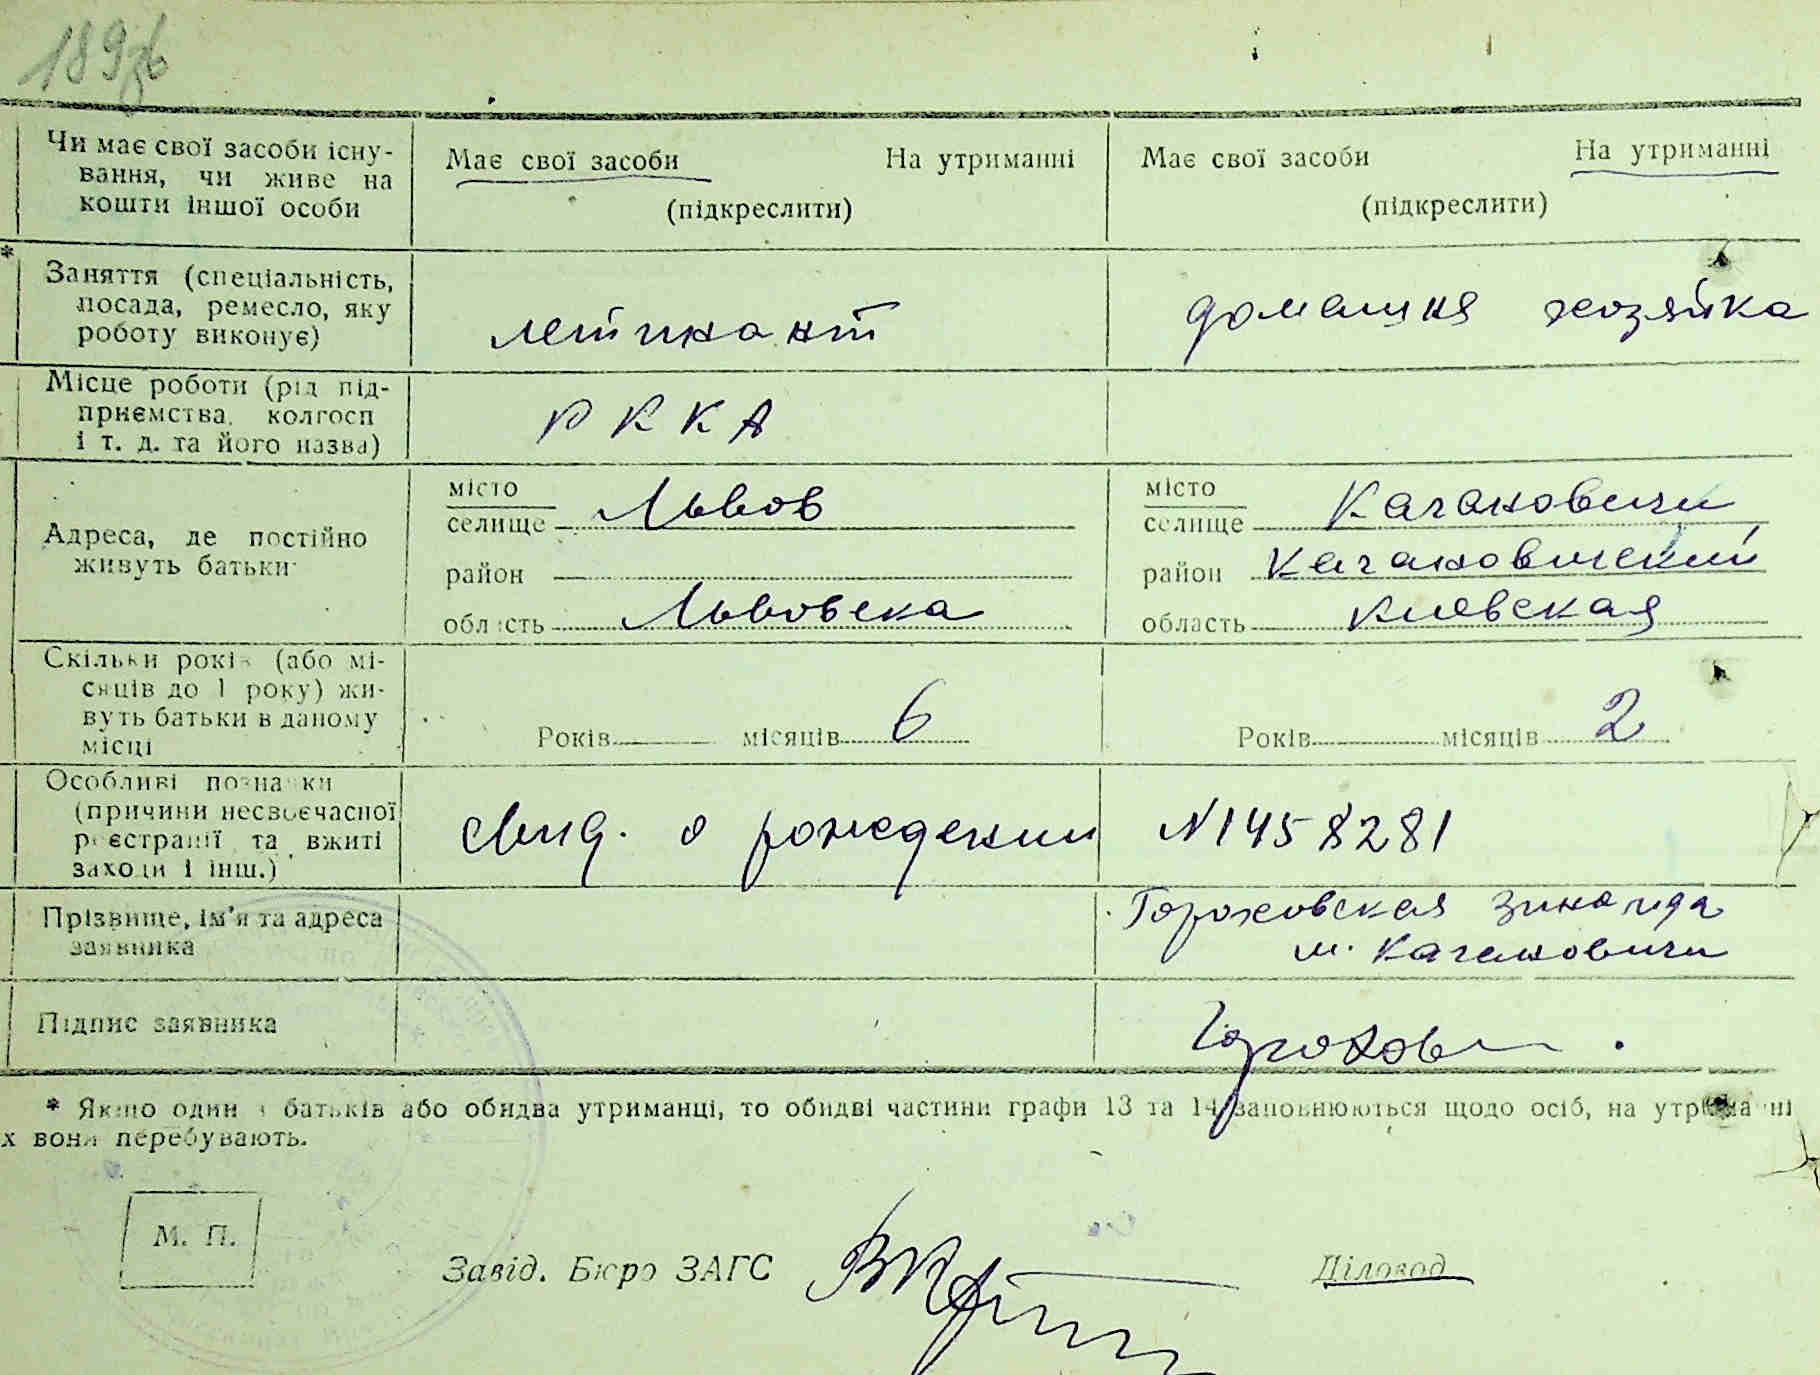 189
Чи має свої засоби існу-
вання, чи живе на
кошти іншої особи
Має свої засоби На утриманні
(підкреслити)
Має свої засоби На утриманні
(підкреслити)
* Заняття (спеціальність,
посада, ремесло, яку
роботу виконує)
лейтинант
домашня хозяйка
Місце роботи (рід під-
приємства, колгосп
і т. д. та його назва)
РККА
Адреса, де постійно
живуть батьки
місто
селище Львов
район
область Львовска
місто
селище Кагановичи
район Кагановический
область Киевская
Скільки років (або мі-
сяців до 1 року) жи-
вуть батьки в даному
місці
Років місяців 6
Років місяців 2
Особливі познаки
(причини несвоєчасної
реєстрації та вжиті
заходи і інш.)
Свид. о рождении N1458281
Прізвище, ім'я та адреса
заявника
Гороховская Зинаида
м. Кагановичи
Підпис заявника
Горохов
* Якщо один з батьків або обидва утриманці, то обидві частини графи 13 та 14 заповнюються щодо осіб, на утриманні
х вони перебувають.
М. П.
Завід. Бюро ЗАГС
Діловод